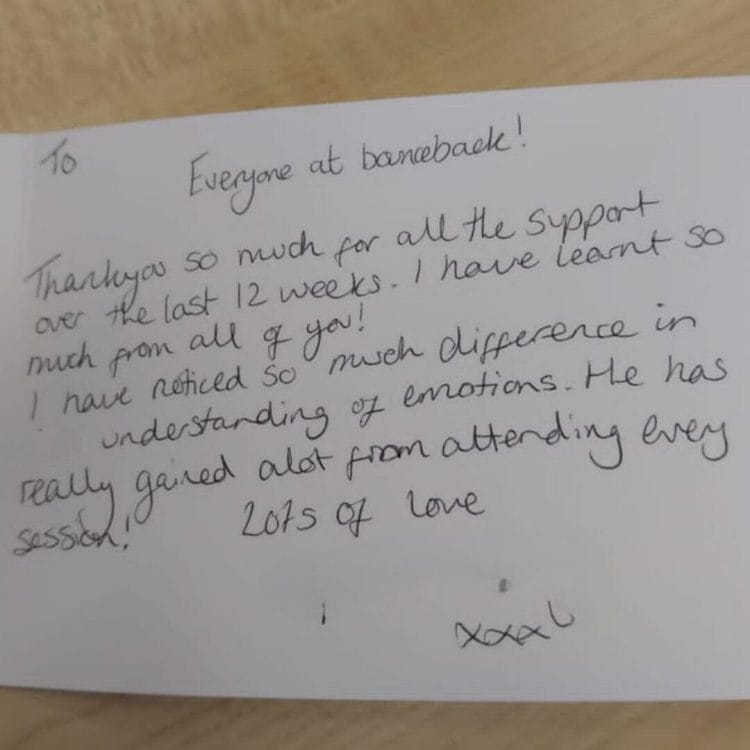 To
Everyone at bounceback!
Thankyou so much for all the support
over the last 12 weeks. I have learnt so
much from all of you!
I have noticed so much difference in
understanding of emotions. He has
really gained alot from attending every
session!
Lots of love
xxx